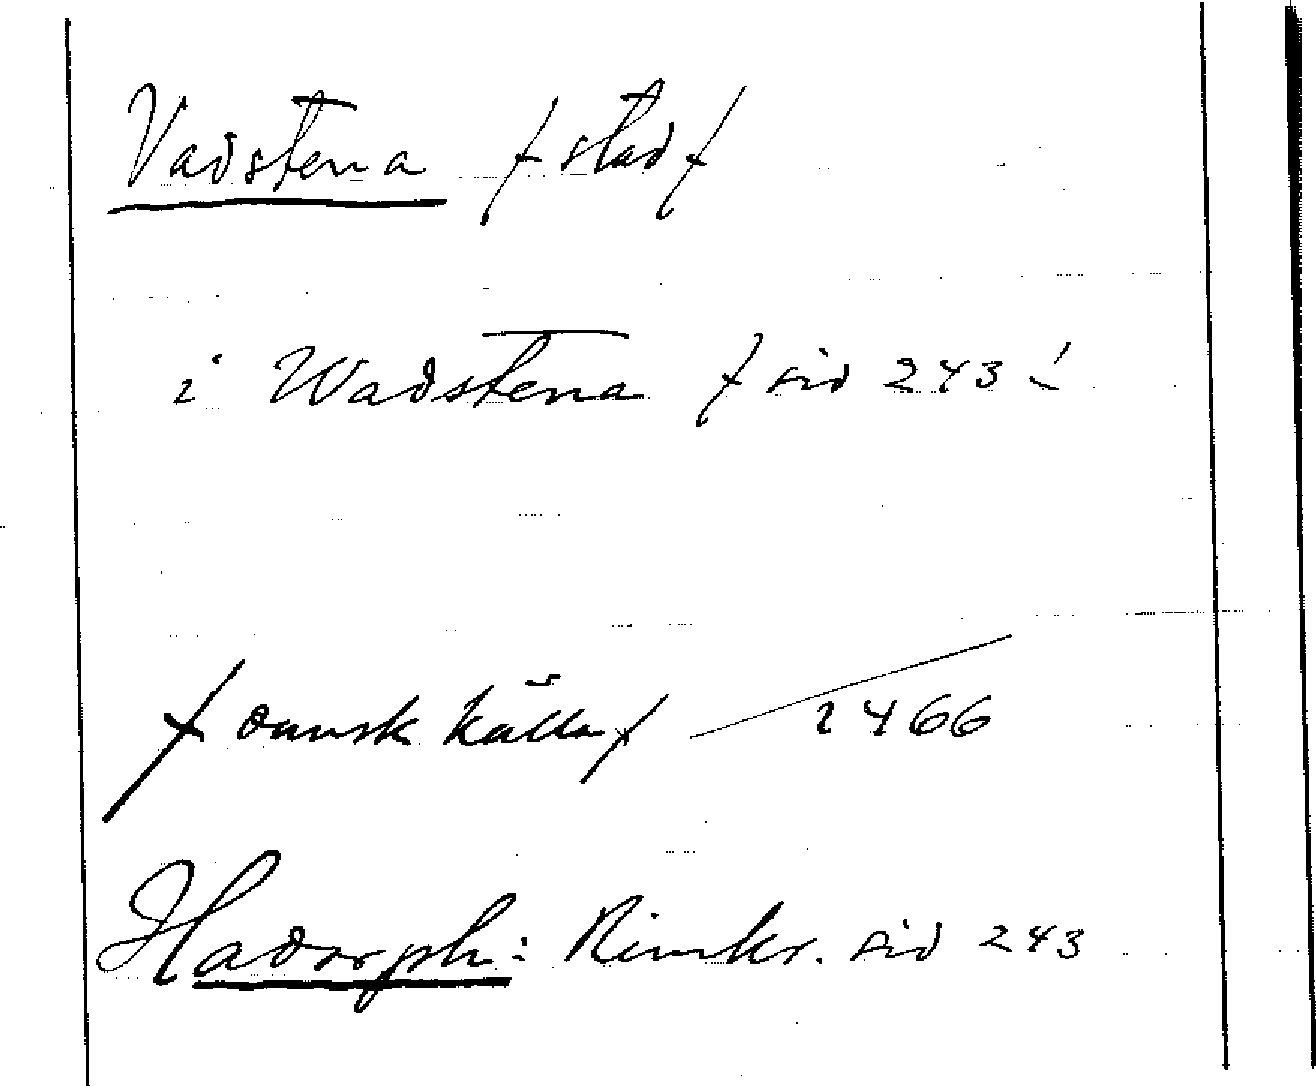 Vadstena /stad/
i Wadstena /sid 243/
/dansk källa/ 1466
Hadorph: Rimkr. sid 243